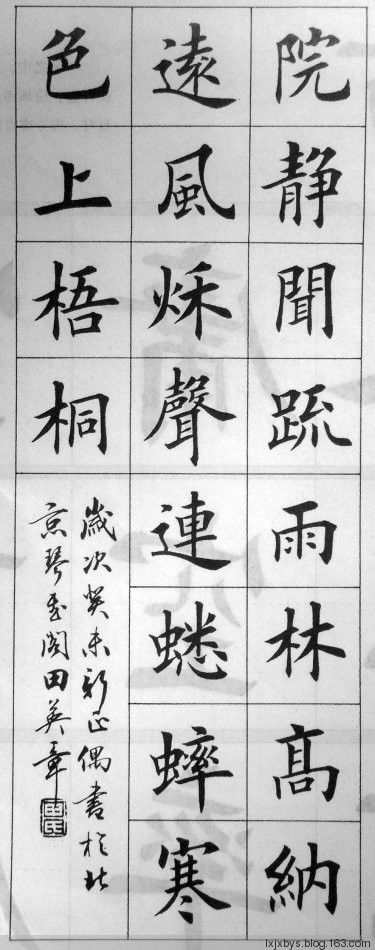 院静聞䟽雨林髙納
遠風秌聲連蟋蟀寒
色上梧桐
歲次癸未新正偶書於北
京琴閣田英章
lxjxbys.blog.163.com